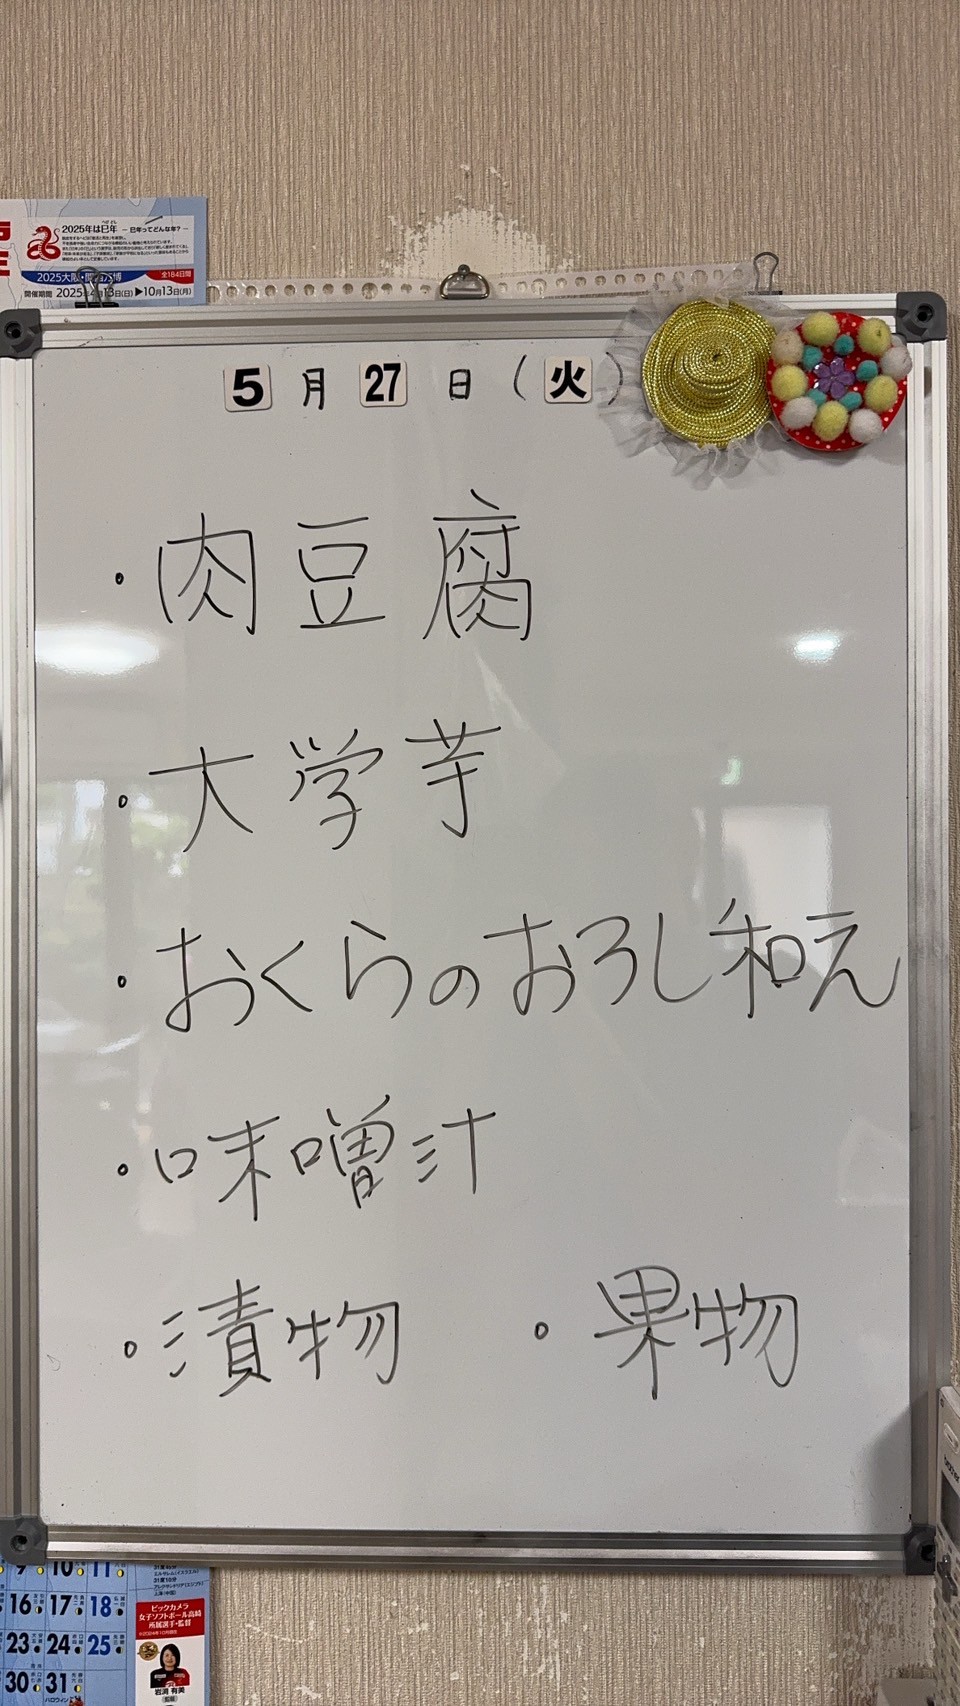 2025年は巳年 ー 巳年ってどんな年? ー
2025大阪・関西万博
全184日間
開催期間 2025年4月13日(日)▶10月13日(月)
5月27日(火)
・肉豆腐
・大学芋
・おくらのおろし和え
・味噌汁
・漬物 ・果物
9 10 11
16 17 18
23 24 25
30 31
ハロウィン
ビックカメラ
女子ソフトボール高崎
所属選手・監督
岩渕 有美